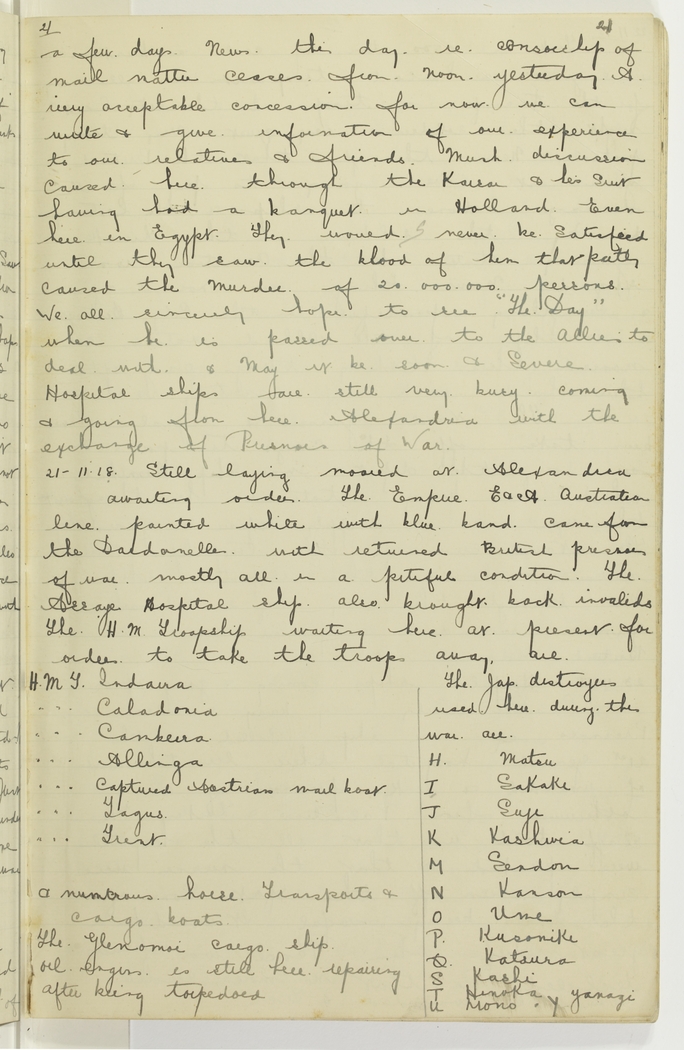 21
21
a few. days. News. this day. re. censorship of
mail matter ceases. from. noon. yesterday. A.
very acceptable concession. for now. we can
write & give. information of our. experience
to our. relatives & friends. Much. discussion
caused. here. through the Kaiser & his Suit
having had a banquet. in Holland. Even
here. in Egypt. They. would. never. be. Satisfied
until they saw. the blood of him that partly
caused the murder. of 20.000.000. persons.
We. all. sincerely hope. to see "The. Day"
when he. is passed over. to the Allies to
deal. with. & May it be. soon. & Severe.
Hospital ships are. still very. busy. coming
& going from here. Alexandria with the
exchange of Prisnors of War.
21-11-18. Still laying moored at. Alexandria
awaiting orders. The. Empire. E & A. Australian
line. painted white with blue. band. came from
the Dardanelles. with returned British prisnors
of war. mostly all. in a pitiful condition. The.
Assaye Hospital ship. also. brought. back. invalids
The. H.M. Troopship waiting here. at. present. for
orders. to take the troops away, are.
H.M.T. Indarra
" " " Caladonia
" " " Canberra.
" " " Allinga
" " " Captured Austrian mail boat.
" " " Tagus.
" " " Trent.
a numerous. horse. Transports &
cargo. boats.
The. Glenomoi cargo. ship.
oil. engins. is still here. repairing
after being torpedoed
The. Jap. distroyers
used here. during. this
war. are.
H. Matsu
I Sakaki
J Sugi
K Kashwia
M Sendon
N Kanson
O Ume
P. Kusonike
Q. Katsura
S Kashi
T Hinoka
U Momo. Y yanagi